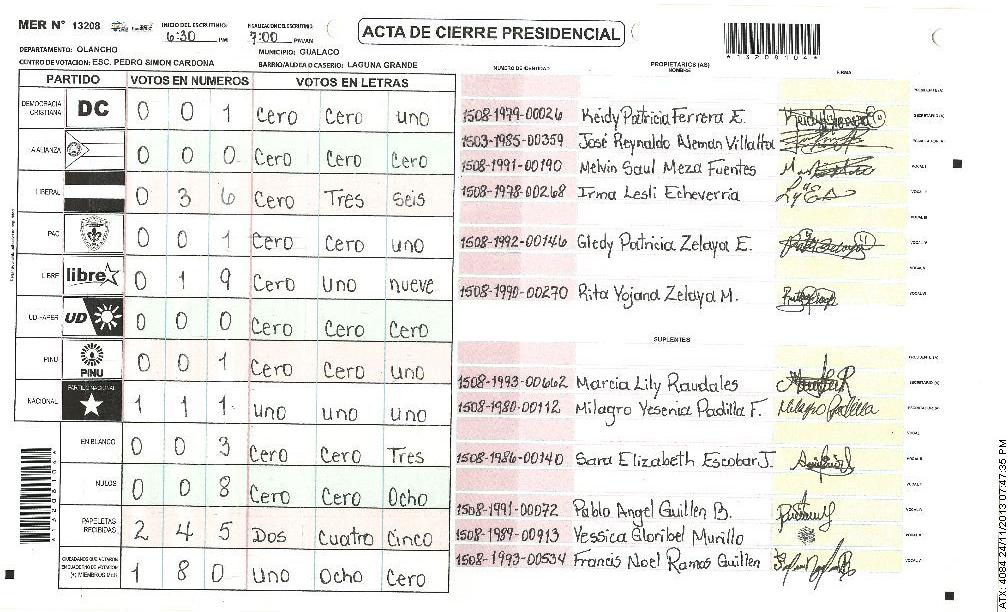 MER N° 13208
INICIO DEL ESCRUTINIO: 6:30 PM
FINALIZACION DEL ESCRUTINIO: 7:00 PM/AM
ACTA DE CIERRE PRESIDENCIAL
*1320810 4*
DEPARTAMENTO: OLANCHO
MUNICIPIO: GUALACO
CENTRO DE VOTACION: ESC. PEDRO SIMON CARDONA
BARRIO/ALDEA O CASERIO: LAGUNA GRANDE
PARTIDO VOTOS EN NUMEROS VOTOS EN LETRAS
DEMOCRACIA CRISTIANA DC 0 0 1 Cero Cero uno
ALIANZA 0 0 0 Cero Cero Cero
LIBERAL 0 3 6 Cero Tres seis
PAC 0 0 1 Cero Cero uno
LIBRE libre 0 1 9 Cero uno nueve
UD-FAPER UD 0 0 0 Cero Cero Cero
PINU PINU 0 0 1 Cero Cero uno
NACIONAL PARTIDO NACIONAL 1 1 1 uno uno uno
EN BLANCO 0 0 3 Cero Cero Tres
NULOS 0 0 8 Cero Cero Ocho
PAPELETAS RECIBIDAS 2 4 5 Dos Cuatro Cinco
CIUDADANOS QUE VOTARON EN CUADERNO DE VOTACION (+) MIEMBROS MER 1 8 0 uno Ocho Cero
NUMERO DE IDENTIDAD PROPIETARIOS (AS) NOMBRE FIRMA
PRESIDENTE (A)
1508-1979-00026 Keidy Patricia Ferrera E. SECRETARIO (A)
1503-1985-00359 José Reynaldo Aleman Villalta
1508-1991-00190 Melvin Saul Meza Fuentes VOCAL I
1508-1978-00268 Irma Lesli Echeverria VOCAL II
VOCAL III
1508-1992-00146 Gledy Patricia Zelaya E. VOCAL IV
VOCAL V
1508-1990-00270 Rita Yojana Zelaya M. VOCAL VI
SUPLENTES
PRESIDENTE (A)
1508-1993-00662 Marcia Lily Raudales SECRETARIO (A)
1508-1980-00112 Milagro Yesenia Padilla F. Milagro Padilla
VOCAL I
1508-1986-00140 Sara Elizabeth Escobar J. VOCAL II
1508-1991-00072 Pablo Angel Guillen B.
1508-1989-00913 Yessica Gloribel Murillo
1508-1993-00534 Francis Noel Ramos Guillen
ATX: 4084 24/11/2013 07:47:35 PM